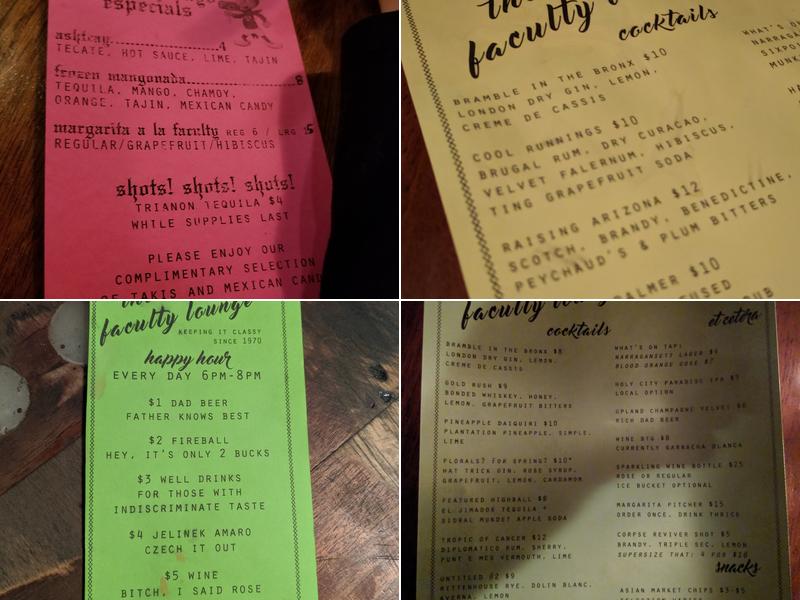 especials
ashtray 4
TECATE, HOT SAUCE, LIME, TAJIN
frozen mangonada 8
TEQUILA, MANGO, CHAMOY,
ORANGE, TAJIN, MEXICAN CANDY
margarita a la faculty REG 6 / LRG 15
REGULAR/GRAPEFRUIT/HIBISCUS
shots! shots! shots!
TRIANON TEQUILA $4
WHILE SUPPLIES LAST
PLEASE ENJOY OUR
COMPLIMENTARY SELECTION
OF TAKIS AND MEXICAN CAND
faculty
cocktails
BRAMBLE IN THE BRONX $10
LONDON DRY GIN, LEMON,
CREME DE CASSIS
COOL RUNNINGS $10
BRUGAL RUM, DRY CURACAO,
VELVET FALERNUM, HIBISCUS,
TING GRAPEFRUIT SODA
RAISING ARIZONA $12
SCOTCH, BRANDY, BENEDICTINE,
PEYCHAUD'S & PLUM BITTERS
PALMER $10
WHAT'S O
NARRAGA
SIXPO
MUNK
HA
faculty lounge
KEEPING IT CLASSY
SINCE 1970
happy hour
EVERY DAY 6PM-8PM
$1 DAD BEER
FATHER KNOWS BEST
$2 FIREBALL
HEY, IT'S ONLY 2 BUCKS
$3 WELL DRINKS
FOR THOSE WITH
INDISCRIMINATE TASTE
$4 JELINEK AMARO
CZECH IT OUT
$5 WINE
BITCH, I SAID ROSE
faculty
cocktails
BRAMBLE IN THE BRONX $8
LONDON DRY GIN, LEMON,
CREME DE CASSIS
GOLD RUSH $9
BONDED WHISKEY, HONEY,
LEMON, GRAPEFRUIT BITTERS
PINEAPPLE DAIQUIRI $10
PLANTATION PINEAPPLE, SIMPLE,
LIME
FLORALS? FOR SPRING? $10*
HAT TRICK GIN, ROSE SYRUP,
GRAPEFRUIT, LEMON, CARDAMOM
FEATURED HIGHBALL $8
EL JIMADOR TEQUILA +
SIDRAL MUNDET APPLE SODA
TROPIC OF CANCER $12
DIPLOMATICO RUM, SHERRY,
PUNT E MES VERMOUTH, LIME
UNTITLED #2 $9
RITTENHOUSE RYE, DOLIN BLANC,
AVERNA, LEMON
et cetera
WHAT'S ON TAP:
NARRAGANSETT LAGER $4
BLOOD ORANGE GOSE $7
HOLY CITY PARADISE IPA $7
LOCAL OPTION
UPLAND CHAMPAGNE VELVET $6
RICH DAD BEER
WINE BTG $8
CURRENTLY GARNACHA BLANCA
SPARKLING WINE BOTTLE $25
ROSE OR REGULAR
ICE BUCKET OPTIONAL
MARGARITA PITCHER $15
ORDER ONCE, DRINK THRICE
CORPSE REVIVER SHOT $5
BRANDY, TRIPLE SEC, LEMON
SUPERSIZE THAT: 4 FOR $16
snacks
ASIAN MARKET CHIPS $3-$5